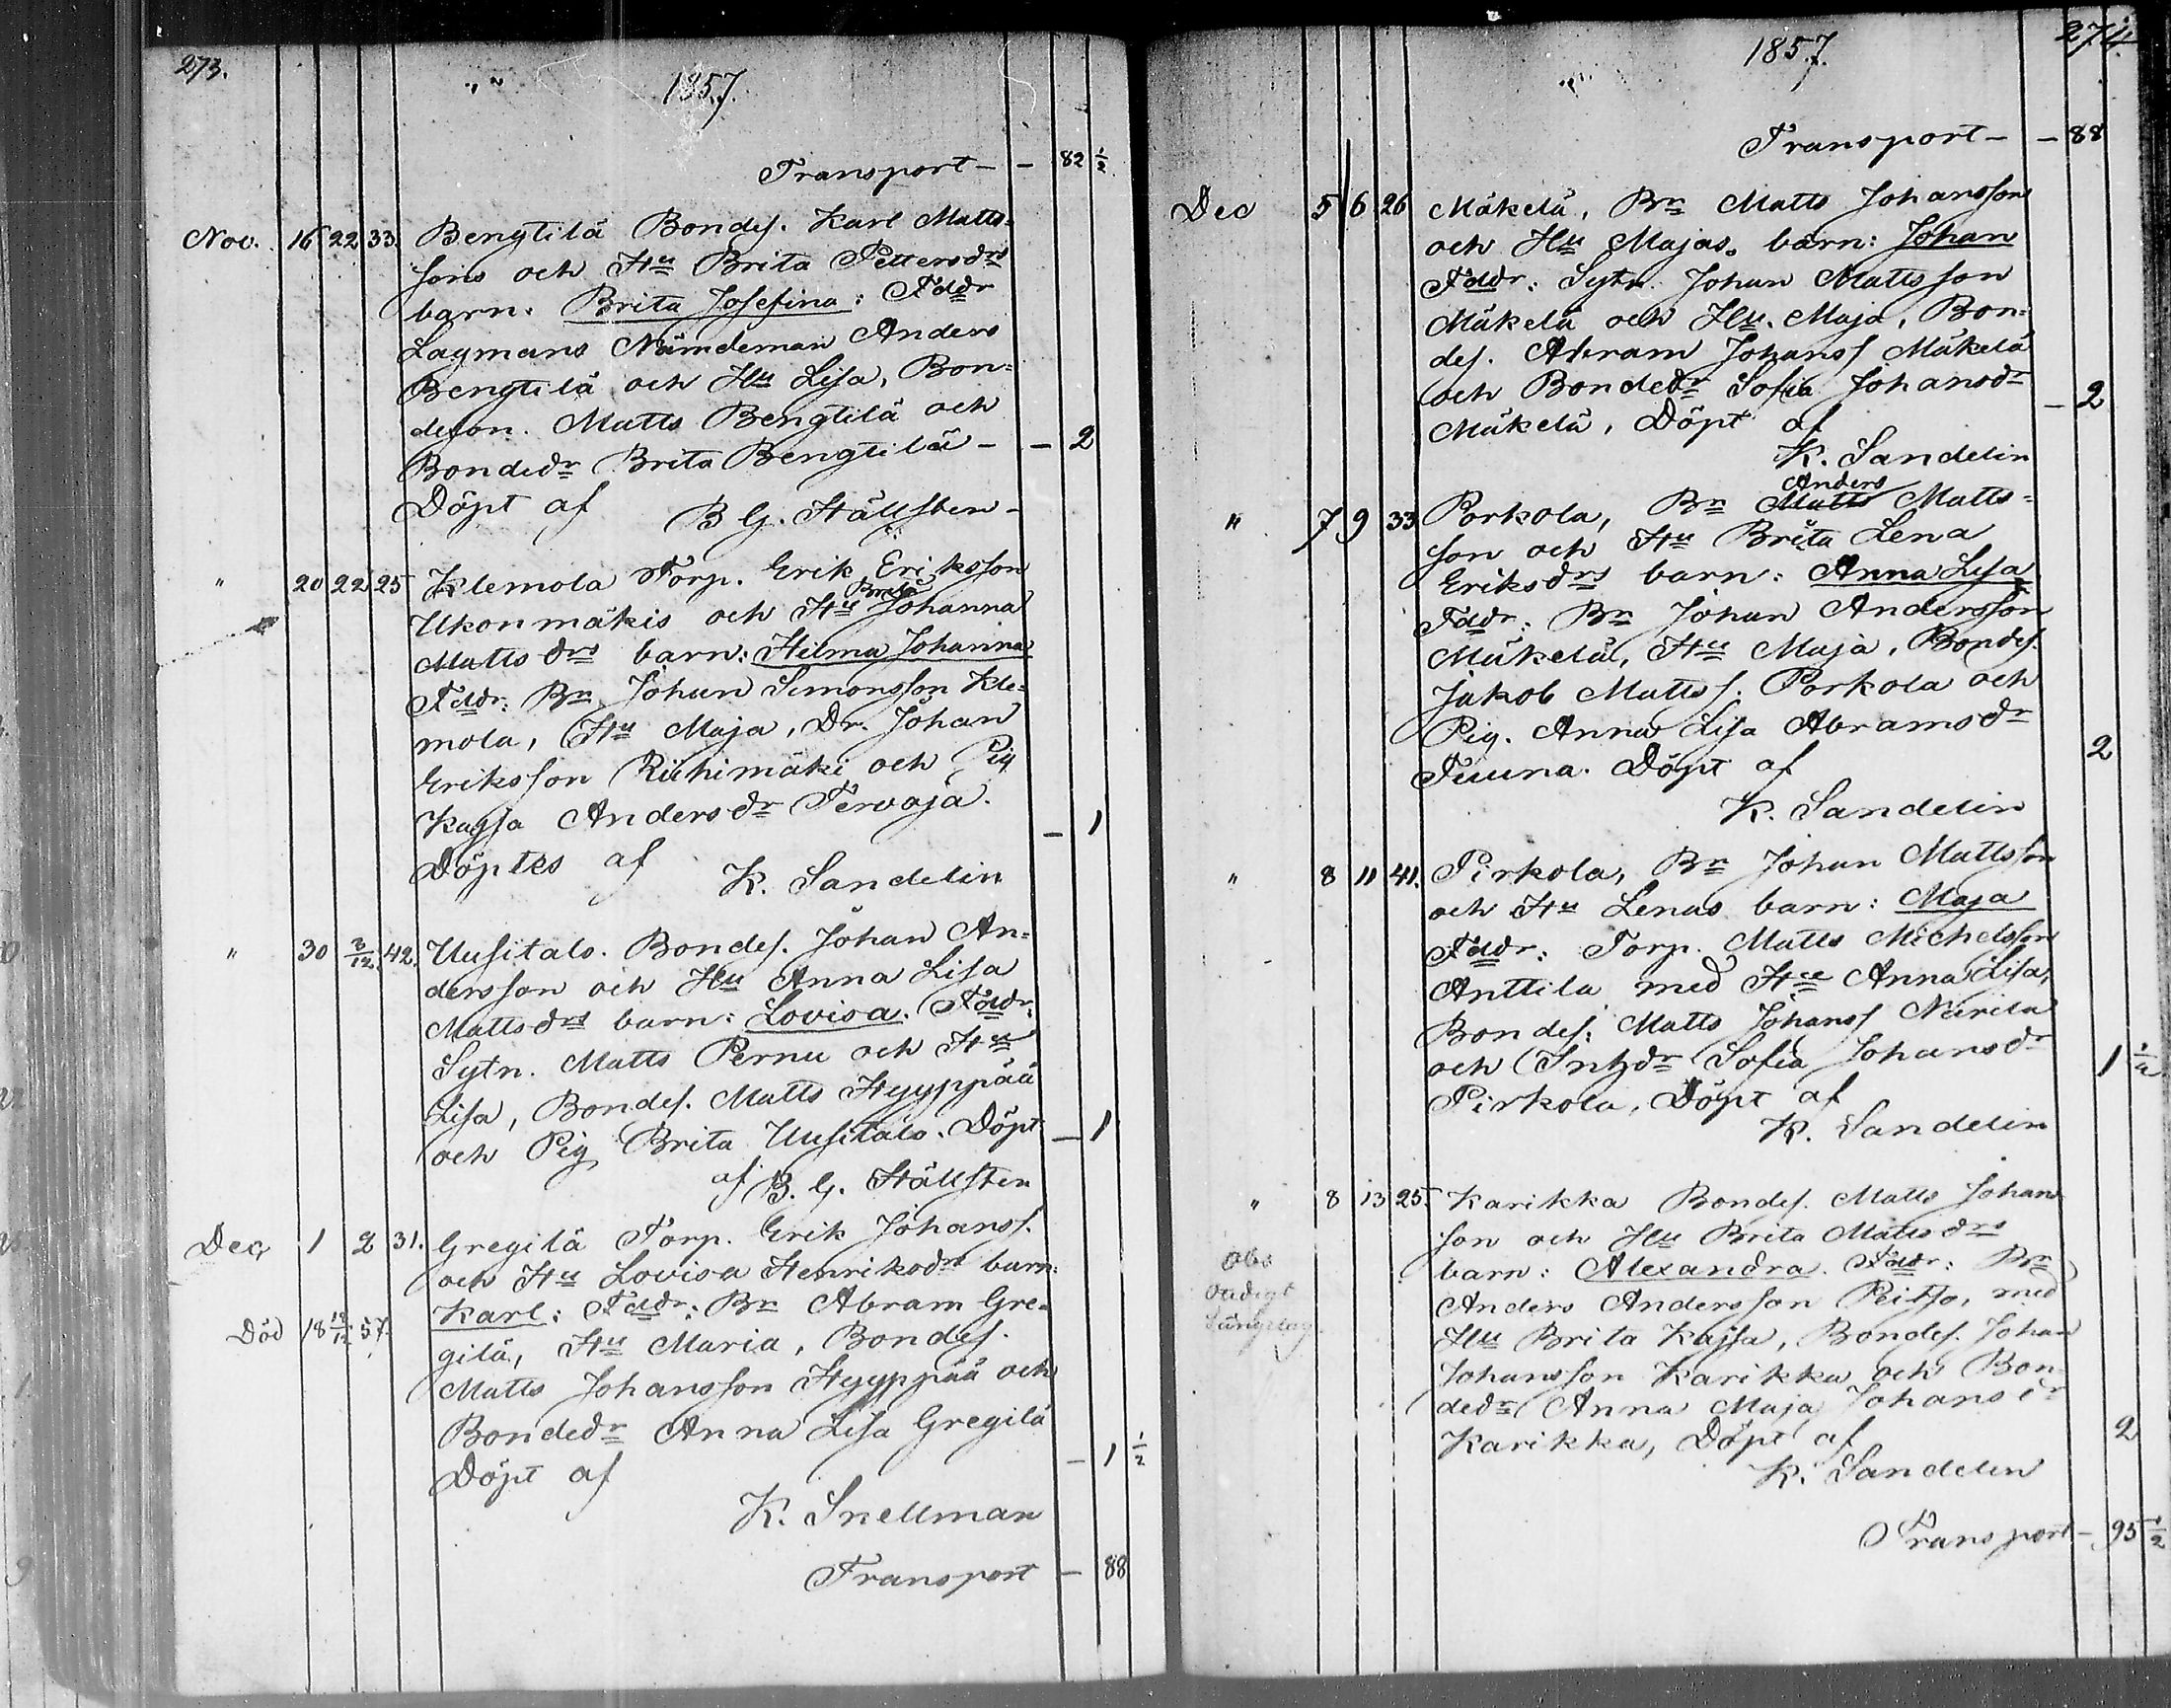 273.
1857.
Transport — — 82 1/2
Nov. 16 22 33. Bengtilä Bondes. Karl Matts-
sons och Hu Brita Pettersdrs
barn: Brita Josefina: Faddr
Lagmans Nämdeman Anders
Bengtilä och Hu Lisa, Bon=
deson. Matts Bengtilä och
Bondedr Brita Bengtilä — — 2
Döpt af
B G. Hällsten
" 20 22 25 Klemola Torp. Erik Eriksson
Brita
Ukonmäkis och Hu Johanna
Mattsdrs barn: Hilma Johanna
Faddr: Bn Johan Simonsson Kle=
mola, Hu Maja, Dr. Johan
Eriksson Riihimäki och Pig
Kajsa Andersdr Tervoja.
— 1
Döptes af
K. Sandelin
" 30 3/12 42. Uusitalo. Bondes. Johan An=
dersson och Hu Anna Lisa
Mattsdrs barn: Lovisa. Faddr:
Sytn. Matts Pernu och Hu
Lisa, Bondes. Matts Hyyppää
och Pig Brita Uusitalo. Döpt — 1
af B. G. Hällsten
Dec 1 2 31. Gregilä Torp. Erik Johanss.
och Hu Lovisa Henriksdrs barn:
Karl: Faddr: Bn Abram Gre-
Död 18 18/12 57. gilä, Hu Maria, Bondes.
Matts Johansson Hyyppää och
Bondedr Anna Lisa Gregilä
Döpt af — 1 1/2
K. Snellman
Transport — 88
274.
1857.
Transport — — 88
Dec 5 6 26 Mäkelä, Bn Matts Johansson
och Hu Majas. barn: Johan
Faddr: Sytn. Johan Mattsson
Mäkelä och Hu. Maja, Bon=
des. Abram Johanss Mäkelä
och Bondedr Sofia Johansdr
Mäkelä, Döpt af — 2
K. Sandelin
Anders
" 7 9 33 Porkola, Bn Matts Matts=
son och Hu Brita Lena
Eriksdrs barn: Anna Lisa
Faddr: Bn Johan Andersson
Mäkelä, Hu Maja, Bondes.
Jakob Mattss. Porkola och
Pig. Anna Lisa Abramsdr
Tuuna. Döpt af 2
K. Sandelin
" 8 11 41. Pirkola, Bn Johan Mattsson
och Hu Lenas barn: Maja
Faddr: Torp. Matts Michelsson
Anttila med Hu Anna Lisa,
Bondes: Matts Johanss Närila
och Inhdr Sofia Johansdr 1 1/2
Pirkola, Döpt af
K. Sandelin
" 8 13 25. Karikka Bondes. Matts Johan
son och Hu Brita Mattsdrs
Obs
barn: Alexandra. Faddr: Bn
Anders Andersson Peitso, med
Hu Brita Kajsa, Bondes. Johan
Johansson Karikka och Bon=
dedr Anna Maja Johansdr
Karikka, Döpt af 2
K. Sandelin
Transport — 95 1/2